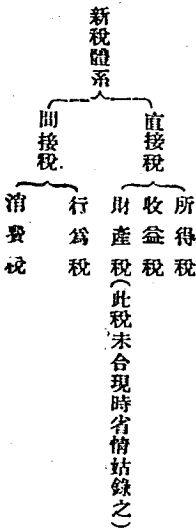 新稅體系
直接稅
所得稅
收益稅
財產稅(此稅未合現時省情姑錄之)
間接稅
行爲稅
消費稅